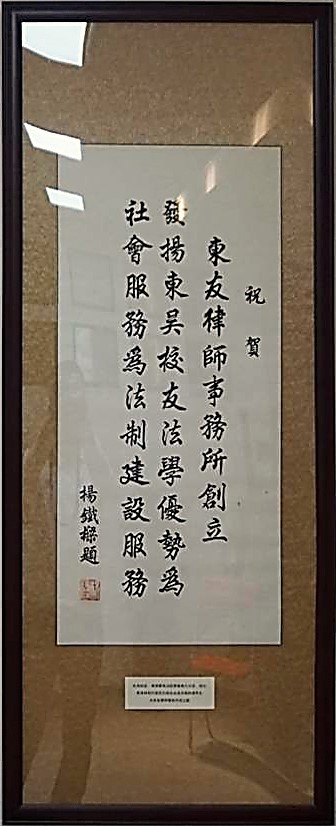 祝賀
東友律師事務所創立
發揚東吴校友法學優勢為
社會服務為法制建設服務
楊鐵樑題